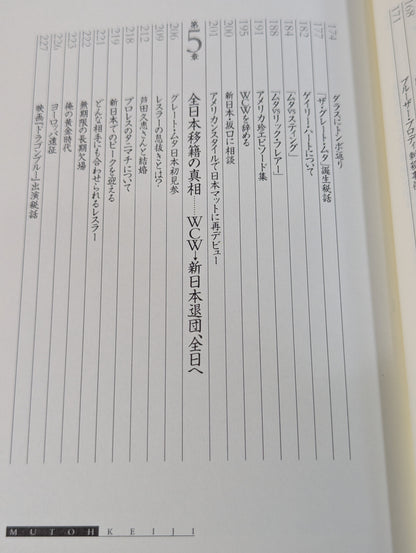 168
ブルーザー・ブロディ
171
174 ダラスにトンボ返り
177 「ザ・グレート・ムタ」誕生秘話
182 ゲイリー・ハートについて
184 「ムタvsスティング」
188 「ムタvsリック・フレアー」
191 アメリカ珍エピソード集
195 WCWを辞める
200 新日本・坂口に相談
201 アメリカンスタイルで日本マットに再デビュー
第5章 全日本移籍の真相……WCW→新日本退団、全日へ
206 グレート・ムタ日本初見参
209 レスラーの息抜きとは?
212 芦田久恵さんと結婚
218 プロレスのタニマチについて
219 新日本でのピークを迎える
221 どんな相手にも合わせられるレスラー
222 無期限の長期欠場
223 俺の黄金時代
226 ヨーロッパ遠征
227 映画『ドラゴンブルー』出演秘話
MUTOH KEIJI